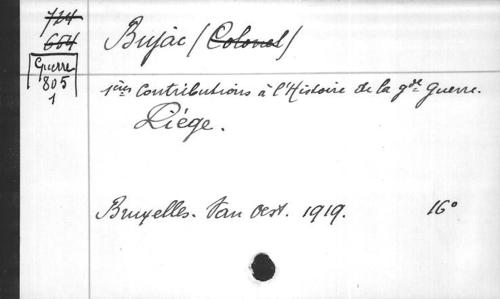 714
664
Guerre
805
1
Bujac (Colonel)
1ères Contributions à l'Histoire de la gde Guerre.
Liége.
Bruxelles. Van Oest. 1919. 16°